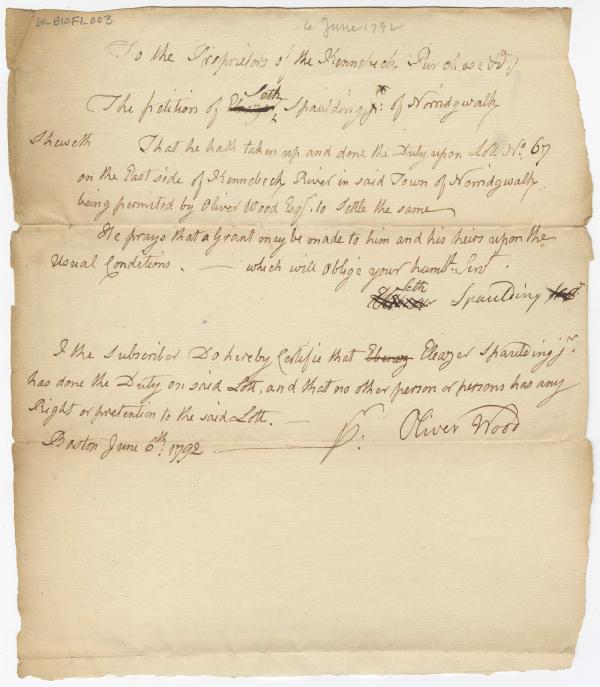 60-B10F1-003
6 June 1792
To the Proprietors of the Kennebeck Purchase &c.
Seth
The petition of Spaulding jr. of Norridgwalk
Sheweth That he hath taken up and done the Duty upon Lott No. 67
on the East side of Kennebeck River in said Town of Norridgwalk
being permited by Oliver Wood Esq. to Settle the same
He prays that a Grant may be made to him and his heirs upon the
Usual Conditions. — which will Oblige your humbl. Servt.
Seth
Spaulding
I the Subscriber Do hereby Certifie that Ebenez Eleazer Spaulding jr.
has done the Duty on said Lott, and that no other person or persons has any
Right or pretention to the said Lott. —
Oliver Wood
Boston June 6th. 1792